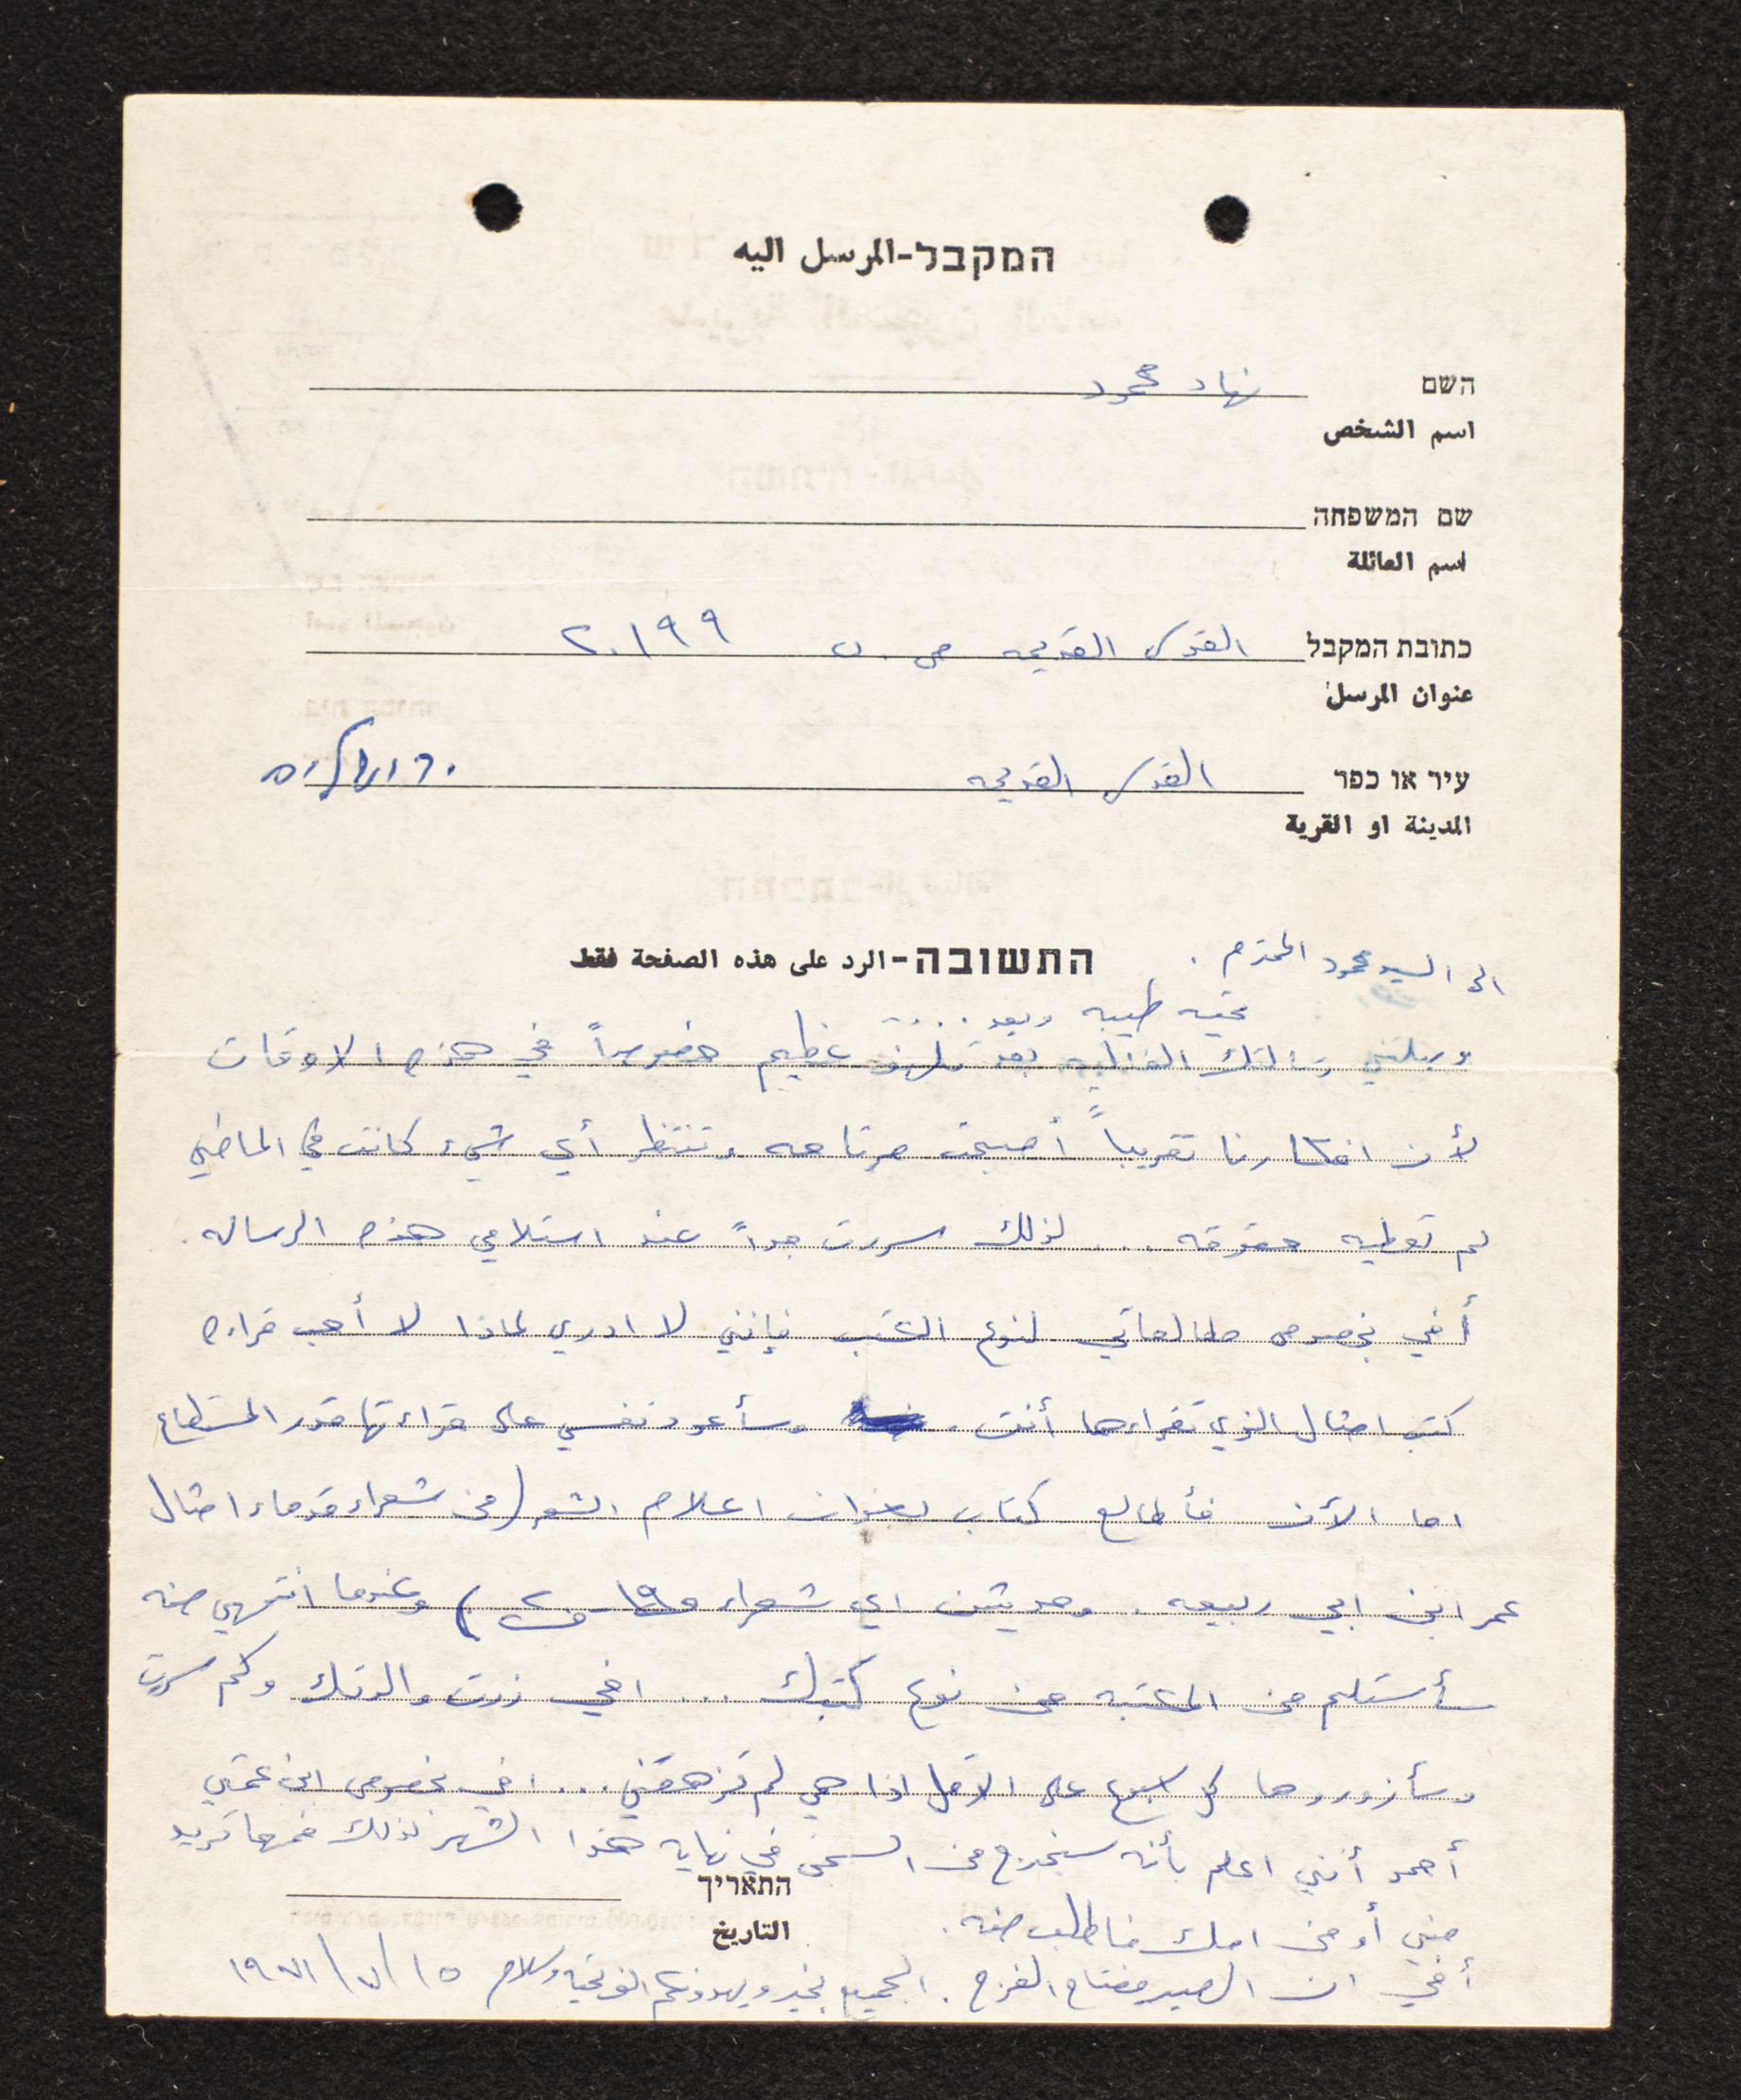 המקבל-المرسل اليه
השם نهاد محمود
اسم الشخص
שם המשפחה
اسم العائلة
כתובת המקבל القدس القديمه ص.ب ٢٠١٩٩
عنوان المرسل
עיר או כפר القدس القديمه
المدينة او القرية
התשובה-الرد على هذه الصفحة فقط
الى السيد محمود المحترم.
تحيه طيبه وبعد....
وصلتني رسالتك الغاليه بعد تلهف عظيم خصوصاً في هذه الاوقات
لأن افكارنا تقريباً أصبحت مرتاحه وتنتظر أي شيء كانت في الماضي
لم تعطيه حقوقه... لذلك سررت جداً عند استلامي هذه الرساله.
أخي بخصوص مطالعاتي لنوع الكتب فإنني لا ادري لماذا لا أحب قراءه
كتب امثال الذي تقراءها أنت. وسأعود نفسي على قراءتها قدر المستطاع
اما الآن فأطالع كتاب بعنوان اعلام الشعر (من شعراء قدماء امثال
عمر ابن ابي ربيعه. وحديثين اي شعراء ق١٩-ق٢٠) وعندما انتهي منه
سأستلم من المكتبه من نوع كتبك... اخي زرت والدتك وكم سررت
وسأزوررها كل اسبوع على الاقل اذا هي لم تزهقني... اخي بخصوص ابن عمتي
أحمد أنني اعلم بأنه سيخرج من السجن في نهايه هذا الشهر لذلك فمهما تريد
مني أو من امك فاطلب منه.
התאריך
التاريخ
أخي ان الصبر مفتاح الفرج. الجميع بخير ويهدونكم الف تحيه وسلام ١٥/٧/١٩٧١